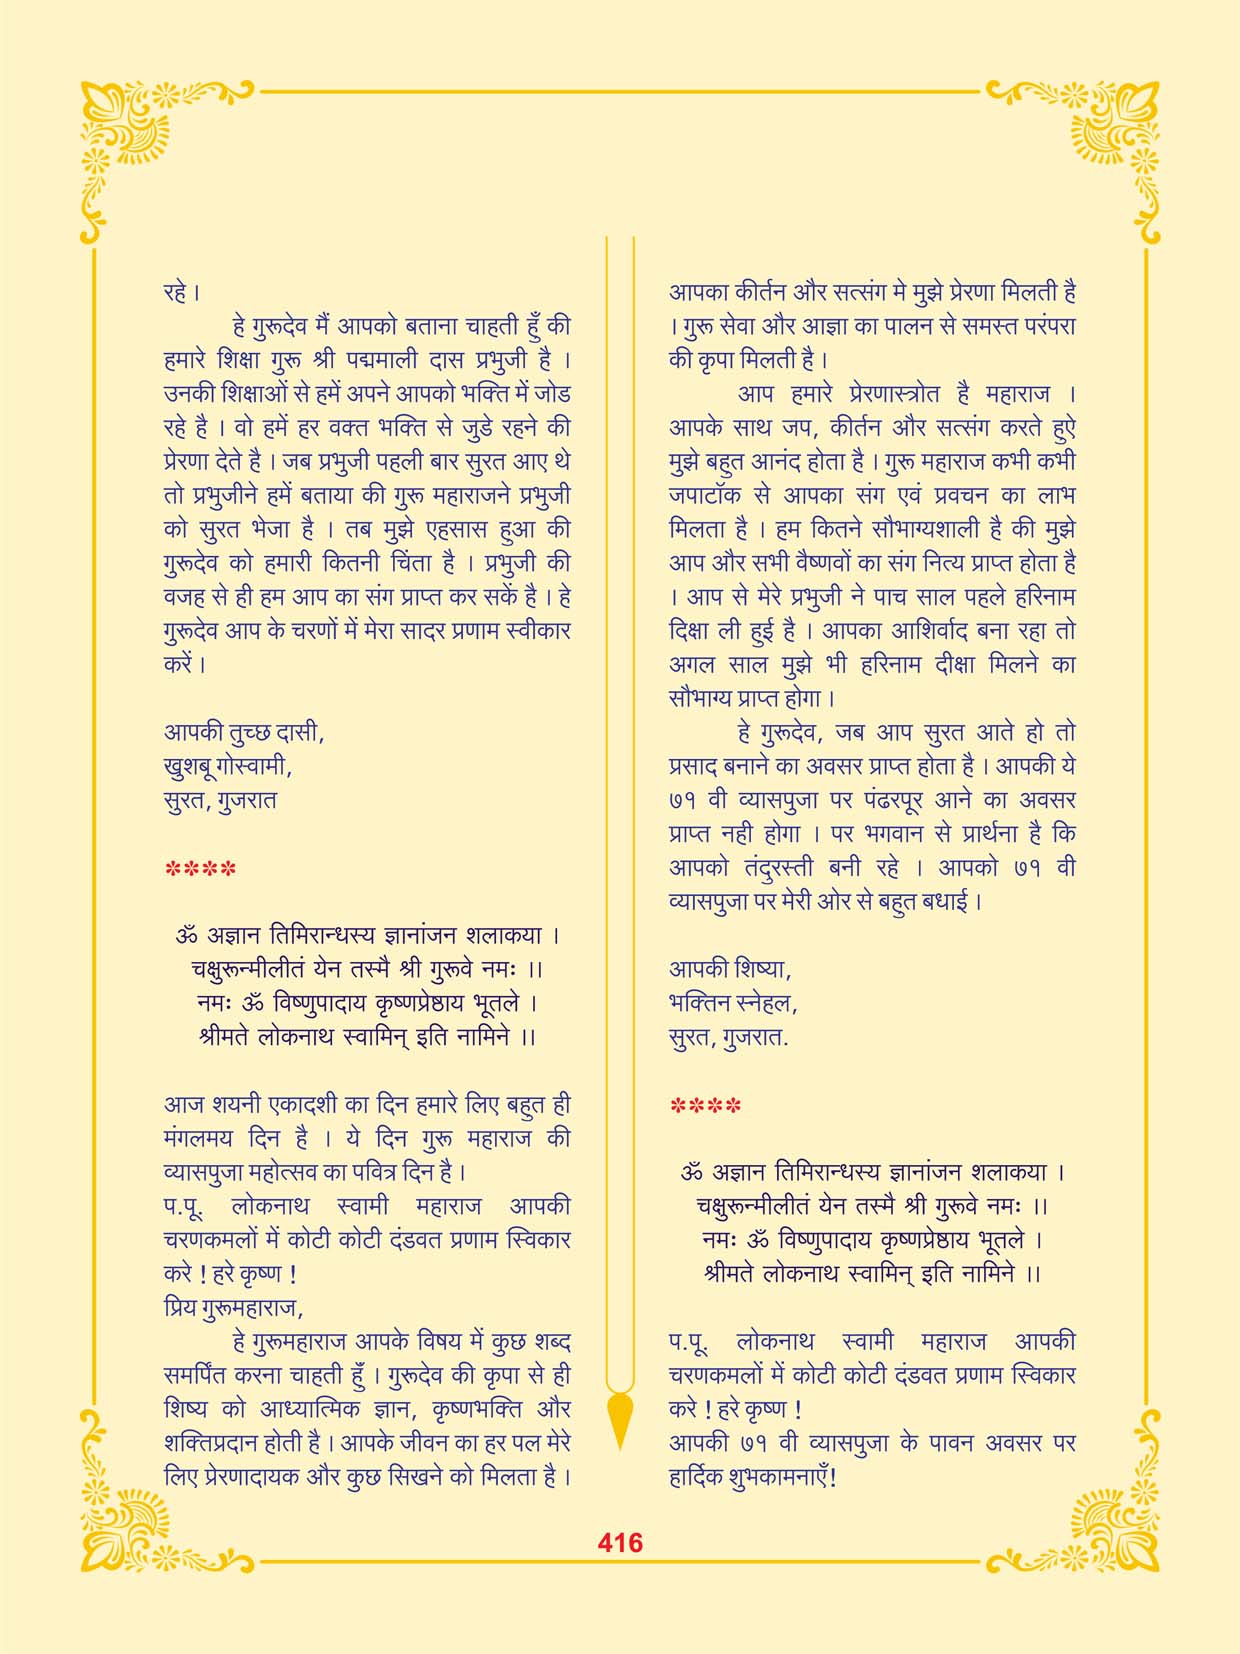 रहे ।
हे गुरूदेव मैं आपको बताना चाहती हुँ की
हमारे शिक्षा गुरू श्री पद्ममाली दास प्रभुजी है ।
उनकी शिक्षाओं से हमें अपने आपको भक्ति में जोड
रहे है । वो हमें हर वक्त भक्ति से जुडे रहने की
प्रेरणा देते है । जब प्रभुजी पहली बार सुरत आए थे
तो प्रभुजीने हमें बताया की गुरू महाराजने प्रभुजी
को सुरत भेजा है । तब मुझे एहसास हुआ की
गुरूदेव को हमारी कितनी चिंता है । प्रभुजी की
वजह से ही हम आप का संग प्राप्त कर सकें है । हे
गुरूदेव आप के चरणों में मेरा सादर प्रणाम स्वीकार
करें ।
आपकी तुच्छ दासी,
खुशबू गोस्वामी,
सुरत, गुजरात
****
ॐ अज्ञान तिमिरान्धस्य ज्ञानांजन शलाकया ।
चक्षुरून्मीलीतं येन तस्मै श्री गुरूवे नमः ।।
नमः ॐ विष्णुपादाय कृष्णप्रेष्ठाय भूतले ।
श्रीमते लोकनाथ स्वामिन् इति नामिने ।।
आज शयनी एकादशी का दिन हमारे लिए बहुत ही
मंगलमय दिन है । ये दिन गुरू महाराज की
व्यासपुजा महोत्सव का पवित्र दिन है ।
प.पू. लोकनाथ स्वामी महाराज आपकी
चरणकमलों में कोटी कोटी दंडवत प्रणाम स्विकार
करे ! हरे कृष्ण !
प्रिय गुरूमहाराज,
हे गुरूमहाराज आपके विषय में कुछ शब्द
समर्पित करना चाहती हुँ । गुरूदेव की कृपा से ही
शिष्य को आध्यात्मिक ज्ञान, कृष्णभक्ति और
शक्तिप्रदान होती है । आपके जीवन का हर पल मेरे
लिए प्रेरणादायक और कुछ सिखने को मिलता है ।
आपका कीर्तन और सत्संग मे मुझे प्रेरणा मिलती है
। गुरू सेवा और आज्ञा का पालन से समस्त परंपरा
की कृपा मिलती है ।
आप हमारे प्रेरणास्त्रोत है महाराज ।
आपके साथ जप, कीर्तन और सत्संग करते हुऐ
मुझे बहुत आनंद होता है । गुरू महाराज कभी कभी
जपाटॉक से आपका संग एवं प्रवचन का लाभ
मिलता है । हम कितने सौभाग्यशाली है की मुझे
आप और सभी वैष्णवों का संग नित्य प्राप्त होता है
। आप से मेरे प्रभुजी ने पाच साल पहले हरिनाम
दिक्षा ली हुई है । आपका आशिर्वाद बना रहा तो
अगल साल मुझे भी हरिनाम दीक्षा मिलने का
सौभाग्य प्राप्त होगा ।
हे गुरूदेव, जब आप सुरत आते हो तो
प्रसाद बनाने का अवसर प्राप्त होता है । आपकी ये
७१ वी व्यासपुजा पर पंढरपूर आने का अवसर
प्राप्त नही होगा । पर भगवान से प्रार्थना है कि
आपको तंदुरस्ती बनी रहे । आपको ७१ वी
व्यासपुजा पर मेरी ओर से बहुत बधाई ।
आपकी शिष्या,
भक्तिन स्नेहल,
सुरत, गुजरात.
****
ॐ अज्ञान तिमिरान्धस्य ज्ञानांजन शलाकया ।
चक्षुरून्मीलीतं येन तस्मै श्री गुरूवे नमः ।।
नमः ॐ विष्णुपादाय कृष्णप्रेष्ठाय भूतले ।
श्रीमते लोकनाथ स्वामिन् इति नामिने ।।
प.पू. लोकनाथ स्वामी महाराज आपकी
चरणकमलों में कोटी कोटी दंडवत प्रणाम स्विकार
करे ! हरे कृष्ण !
आपकी ७१ वी व्यासपुजा के पावन अवसर पर
हार्दिक शुभकामनाएँ!
416